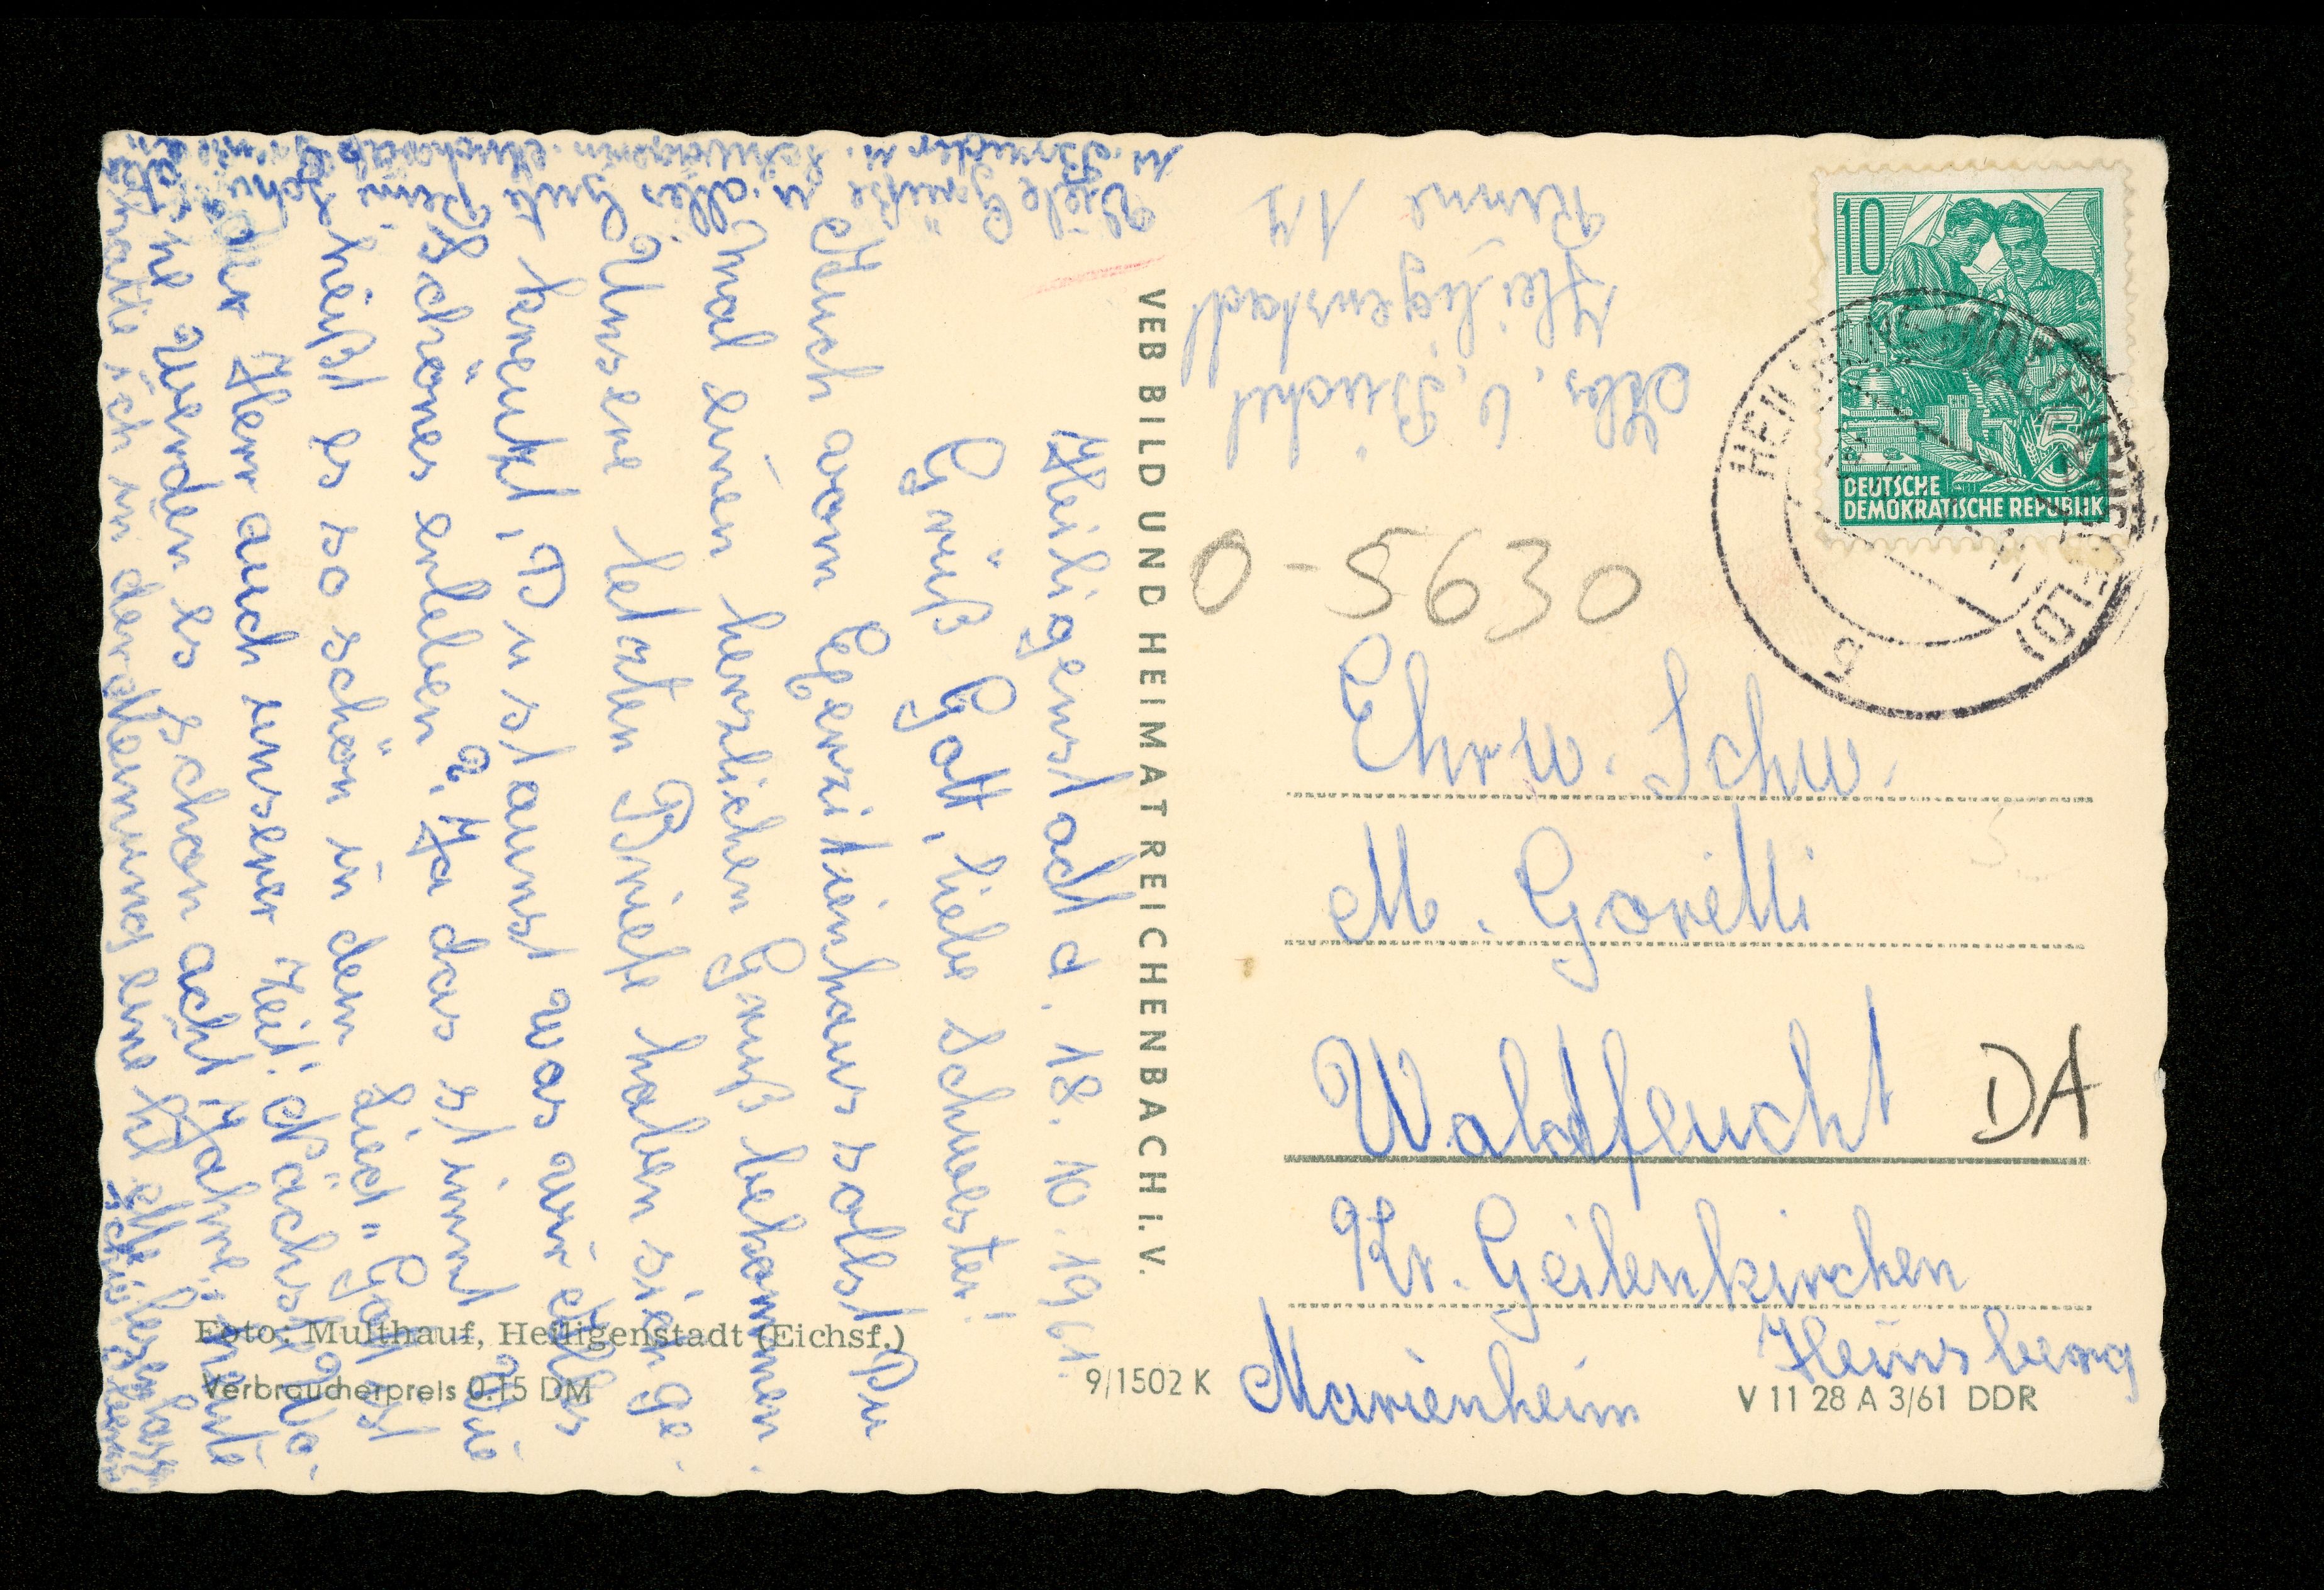 Heiligenstadt d. 18. 10. 1961.
Grüß Gott, liebe Schwester!
Auch vom Exerzitienhaus sollst Du
mal einen herzlichen Gruß bekommen.
Unsere letzten Briefe haben sich ge-
kreuzt, Du staunst was wir alles
Schönes erleben? Ja das stimmt. Wie
heißt es so schön in dem Lied: "Gott ist
der Herr auch unserer Zeit. Nächste Wo-
che werden es schon acht Jahre, heute
hatte ich in der Meinung eine hl. Messe
Viele Grüße u. alles Gute
u. Bruder u. Schwägerin
VEB BILD UND HEIMAT REICHENBACH I. V.
Foto: Multhauf, Heiligenstadt (Eichsf.)
Verbraucherpreis 0.15 DM
9/1502 K
V 11 28 A 3/61 DDR
Abs. Büchel
Heiligenstadt
Rinne 17
10
5
DEUTSCHE
DEMOKRATISCHE REPUBLIK
HEILIGENSTADT (EICHSFELD)
0-5630
Ehrw. Schw.
M. Goretti
Waldfeucht
DA
Kr. Geilenkirchen
Heinsberg
Marienheim